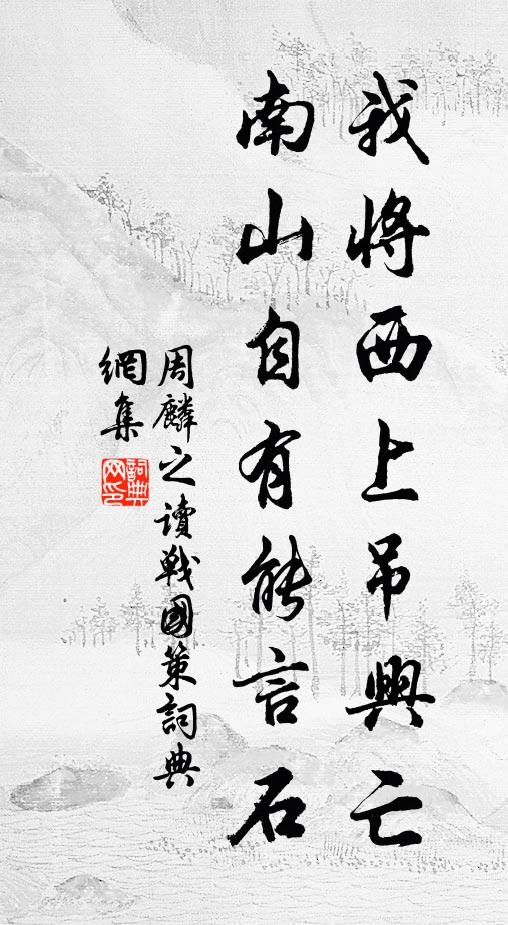 我将西上吊興亡
南山自有能言石
周麟之讀戰國策詞典
網集
詞典
网印